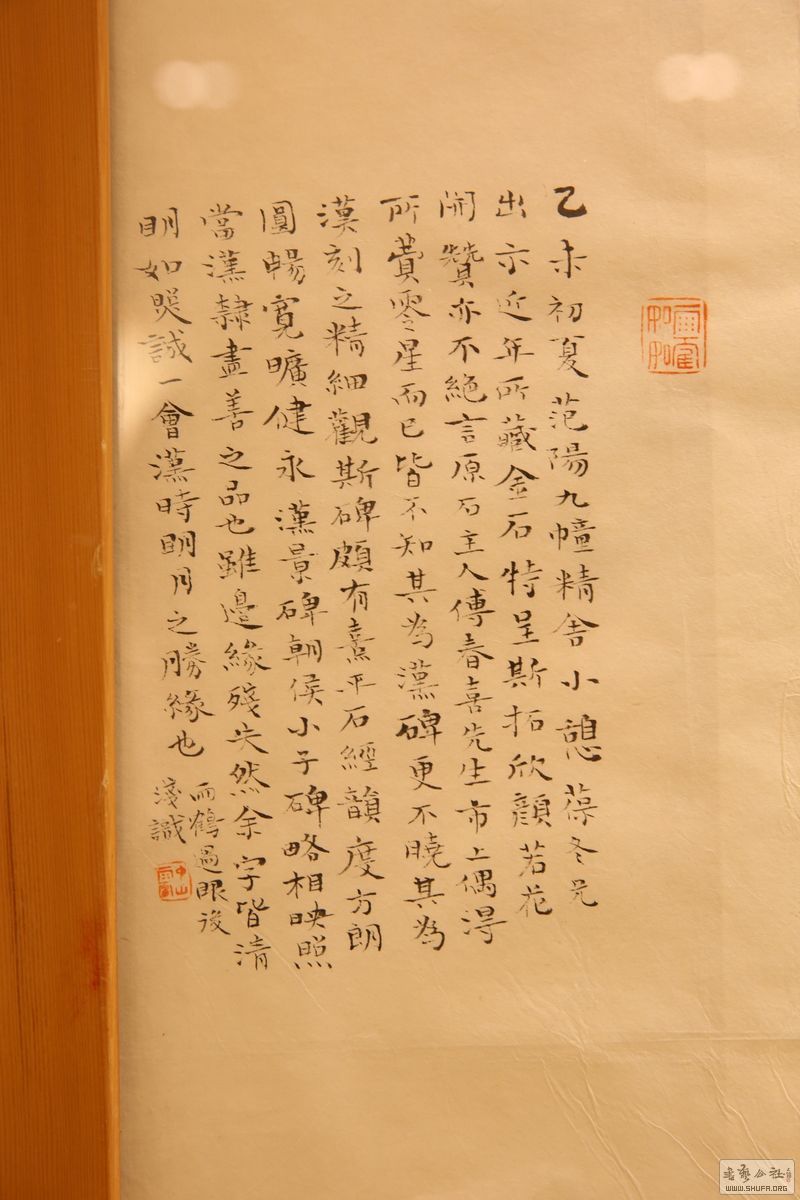 乙未初夏范陽九幢精舍小憩葆冬兄
出示近年所藏金石特呈斯拓欣顏若花
開贊亦不絕言原石主人傅春喜先生市上偶淂
所費零星而已皆不知其為漢碑更不曉其為
漢刻之精細觀斯碑頗有熹平石經韻度方朗
圓暢寬曠健永漢景碑朝侯小子碑略相映照
當漢隸盡善之品也雖邊緣殘失然余字皆清
朙如睽誠一會漢時朙月之勝緣也
雨鶴過眼後
淺識
書藝公社
WWW.SHUFA.ORG